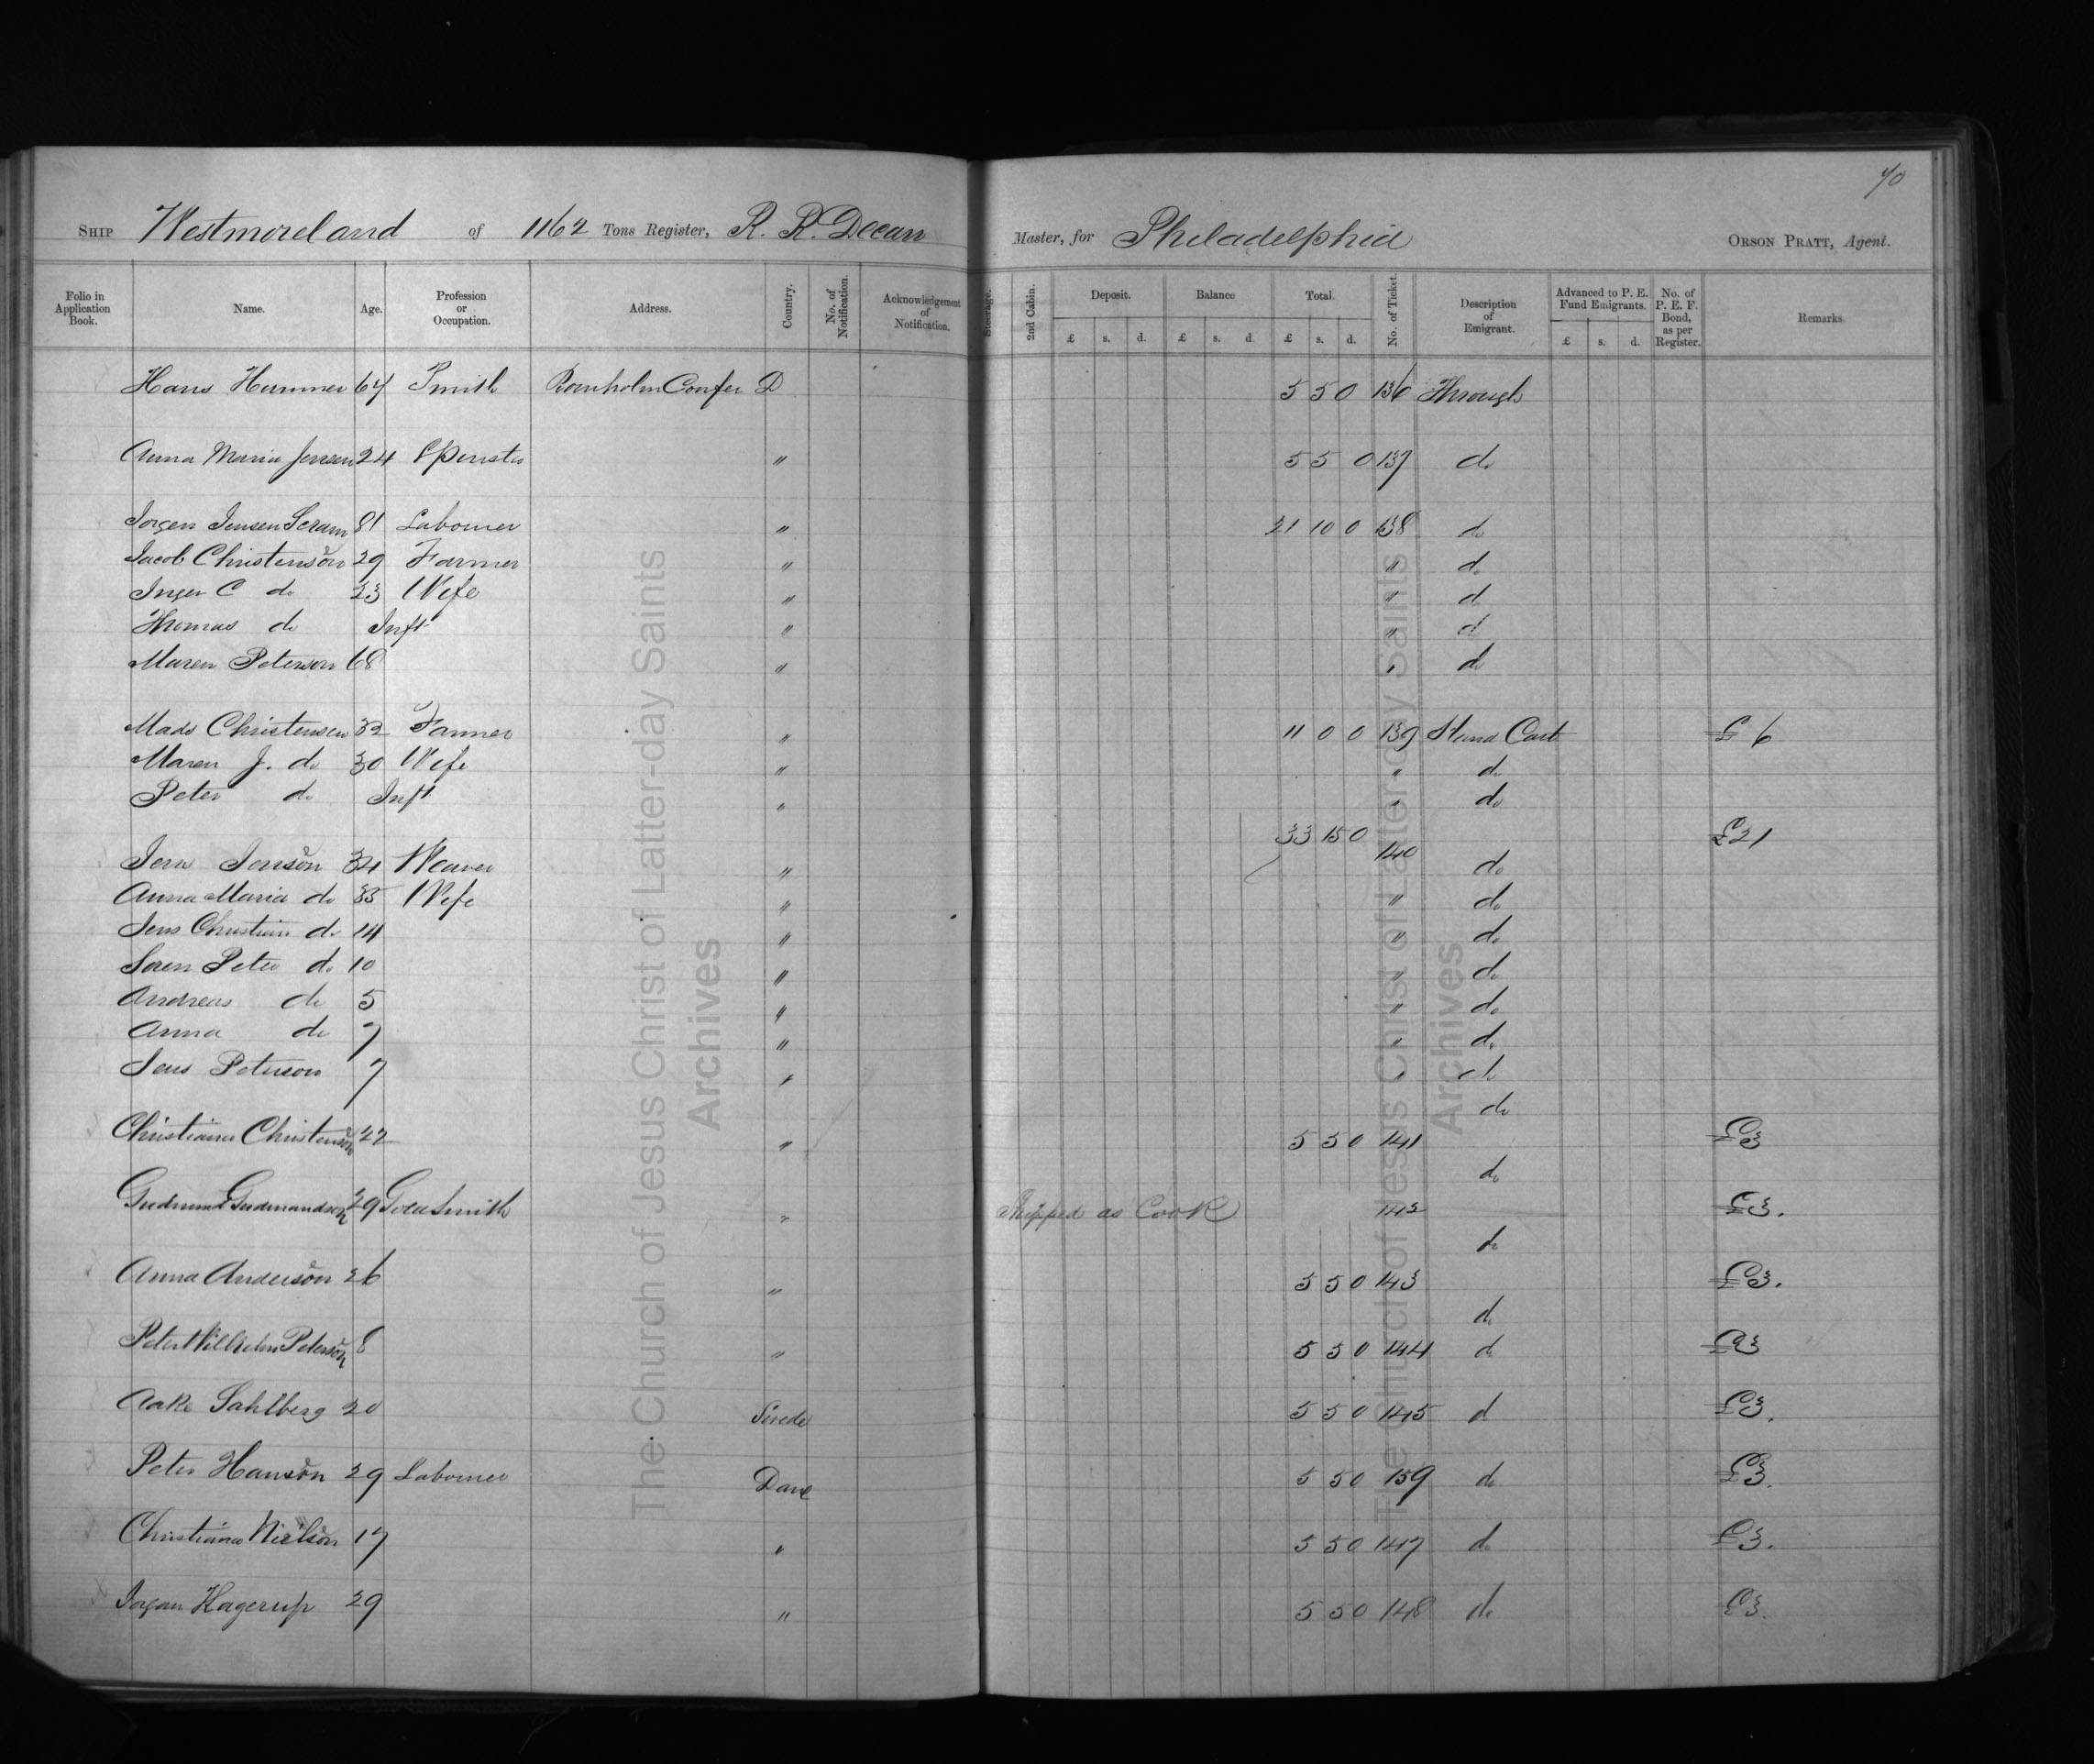 70
SHIP Westmoreland of 1162 Tons Register, R. R. Decan Master, for Philadelphia ORSON PRATT, Agent.
Folio in Application Book. Name. Age. Profession or Occupation. Address. Country. No. of Notification. Acknowledgement of Notification. Steerage. 2nd Cabin. Deposit. Balance Total. No. of Ticket. Description of Emigrant. Advanced to P. E. Fund Emigrants. No. of P. E. F. Bond, as per Register. Remarks.
£ s. d. £ s. d. £ s. d. £ s. d.
Hans Hummer 64 Smith Bornholm Confer D 5 5 0 136 Through
Anna Maria Jensen 24 Spinster " 5 5 0 137 do
Jorgen Jensen Scram 81 Labourer " 21 10 0 138 do
Jacob Christenson 29 Farmer " " do
Inger C do 23 Wife " " do
Thomas do Inft " " do
Maren Peterson 68 " " do
Mads Christensen 32 Farmer " 11 0 0 139 Hand Cart £6
Maren J. do 30 Wife " " do
Peter do Inft " " do
33 15 0 £21
Jens Jenson 34 Weaver " 140 do
Anna Maria do 35 Wife " " do
Jens Christian do 14 " " do
Soren Peter do 10 " " do
Andreas do 5 " " do
Anna do 7 " " do
Jens Peterson 7 " " do
do
Christiana Christenson 22 " 5 5 0 141 £3
do
Gudmund Gudmandson 29 Goldsmith " Shipped as Cook 142 £3.
do
Anna Anderson 26 " 5 5 0 143 £3.
do
Peter Wilhelm Peterson 8 " 5 5 0 144 do £3
Aake Sahlberg 20 Swede 5 5 0 145 d £3.
Peter Hanson 29 Labourer Dane 5 5 0 159 do £3.
Christiana Nielson 17 " 5 5 0 147 do £3.
Jorgan Hagerup 29 " 5 5 0 148 do £3.
The Church of Jesus Christ of Latter-day Saints
Archives
The Church of Jesus Christ of Latter-day Saints
Archives